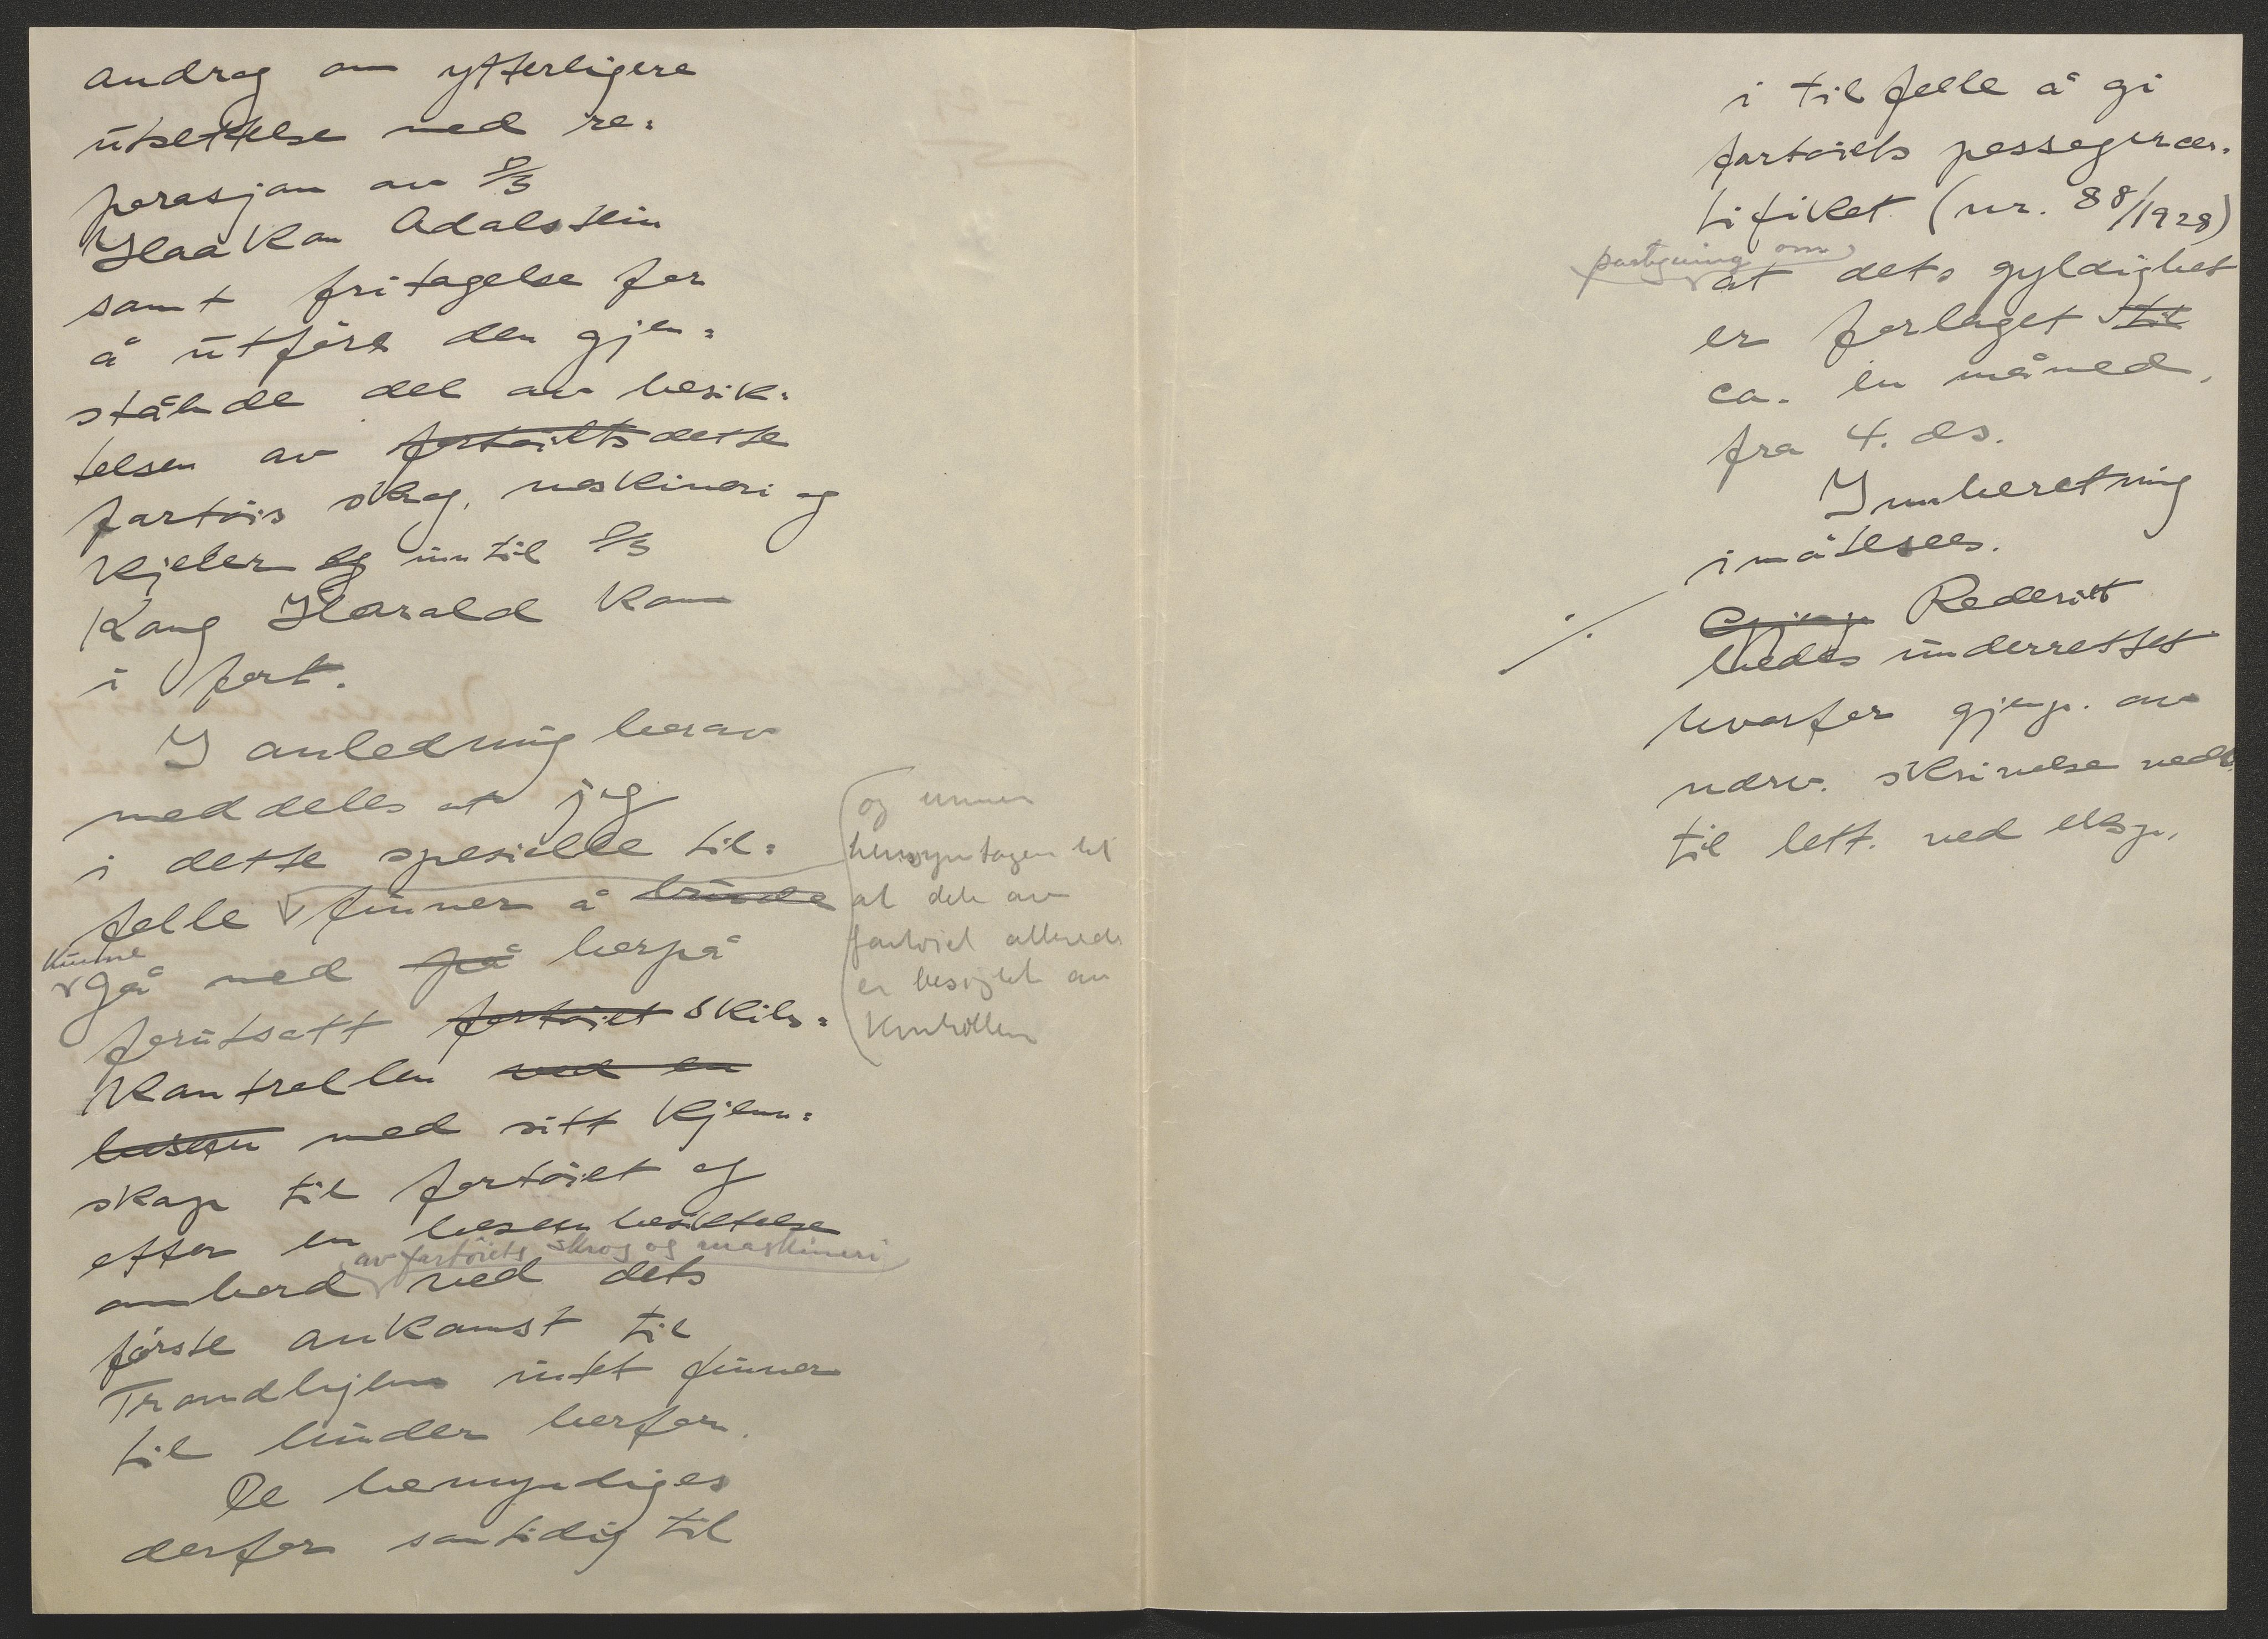 andrag om ytterligere
utsettelse med re=
parasjon av D/S
Haakon Adalstein
samt fritagelse for
å utføre den gjen=
stående del av besik=
telsen av fartøiets dette
fartøis skrog, maskineri og
kjeler og inntil D/S
Kong Harald kom
i fart.
I anledning herav
meddeles at jeg
i dette spesielle til=
felle finner å burde
og under
hensyntagen til
at dele av
fartøiet allerede
er besigtet av
kontrollen
kunne
gå med på herpå
forutsatt fartøiet Skibs=
kontrollen ved en
med sitt kjenn=
skap til fartøiet og
efter en besiktelse
av fartøiets skrog og maskineri
ombord ved dets
første ankomst til
Trondhjem intet finner
til hinder herfor.
De bemyndiges
derfor samtidig til
i tilfelle å gi
fartøiets passasjercer=
tifikat (nr. 88/1928)
påtegning om
at dets gyldighet
er forlenget til
ca. en måned,
fra 4. ds.
Innberetning
imøtesees.
./. Rederiet
bedes underrettet
hvorfor gjenp. av
nærv. skrivelse vedl.
til lett. ved eksp.